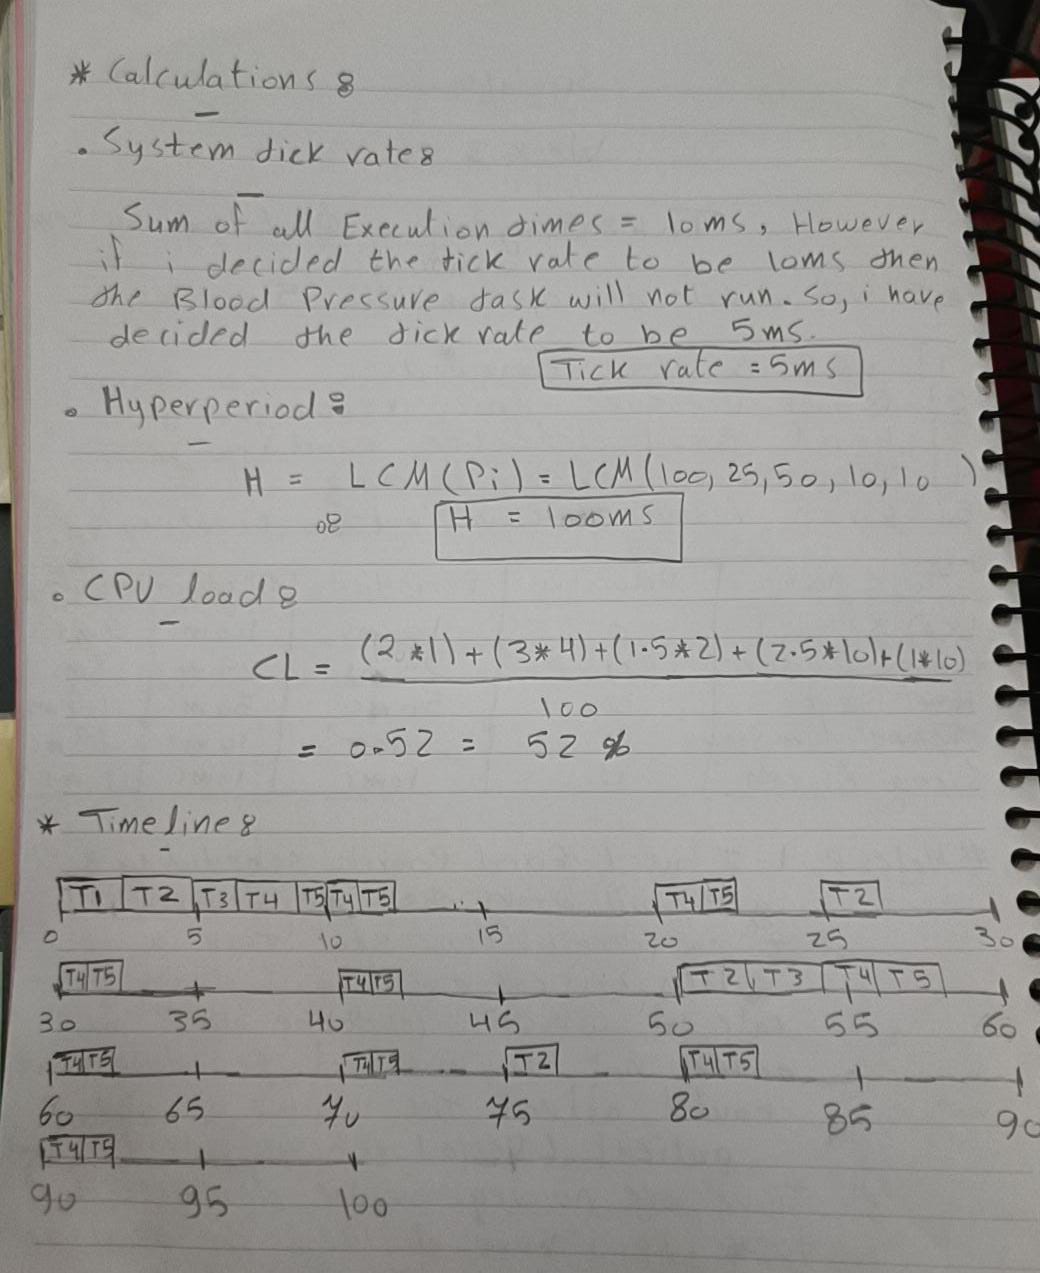 * Calculations :
. System tick rate :
Sum of all Execution times = 10ms, However
if i decided the tick rate to be 10ms then
the Blood Pressure task will not run. So, i have
decided the tick rate to be 5ms.
Tick rate = 5ms
. Hyperperiod :
H = LCM(Pi) = LCM(100, 25, 50, 10, 10 )
H = 100ms
. CPU load :
CL = (2*1)+(3*4)+(1.5*2)+(2.5*10)+(1*10)
100
= 0.52 = 52 %
* Timeline :
T1 T2 T3 T4 T5 T4 T5 T4 T5 T2
0 5 10 15 20 25 30
T4 T5 T4 T5 T2 T3 T4 T5
30 35 40 45 50 55 60
T4 T5 T4 T5 T2 T4 T5
60 65 70 75 80 85 90
T4 T5
90 95 100